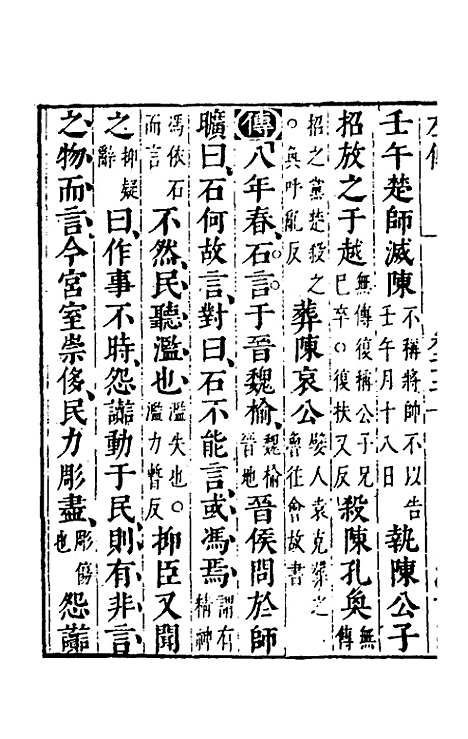 壬午楚師滅陳不稱將帥不以告壬午月十八日執陳公子
招放之于越無傳復稱公子兄巳卒。復扶又反殺陳孔奐無傳
招之黨楚殺之。奐呼亂反葬陳哀公嬖人袁克葬之魯往會故書
傳八年春石言于晉魏榆魏榆晉地晉侯問於師
曠曰石何故言對曰石不能言或馮焉謂有精神
馮依石而言不然民聽濫也濫失也。濫力暫反抑臣又聞
之抑疑辭曰作事不時怨讟動于民則有非言
之物而言今宮室崇侈民力彫盡彫傷也怨讟